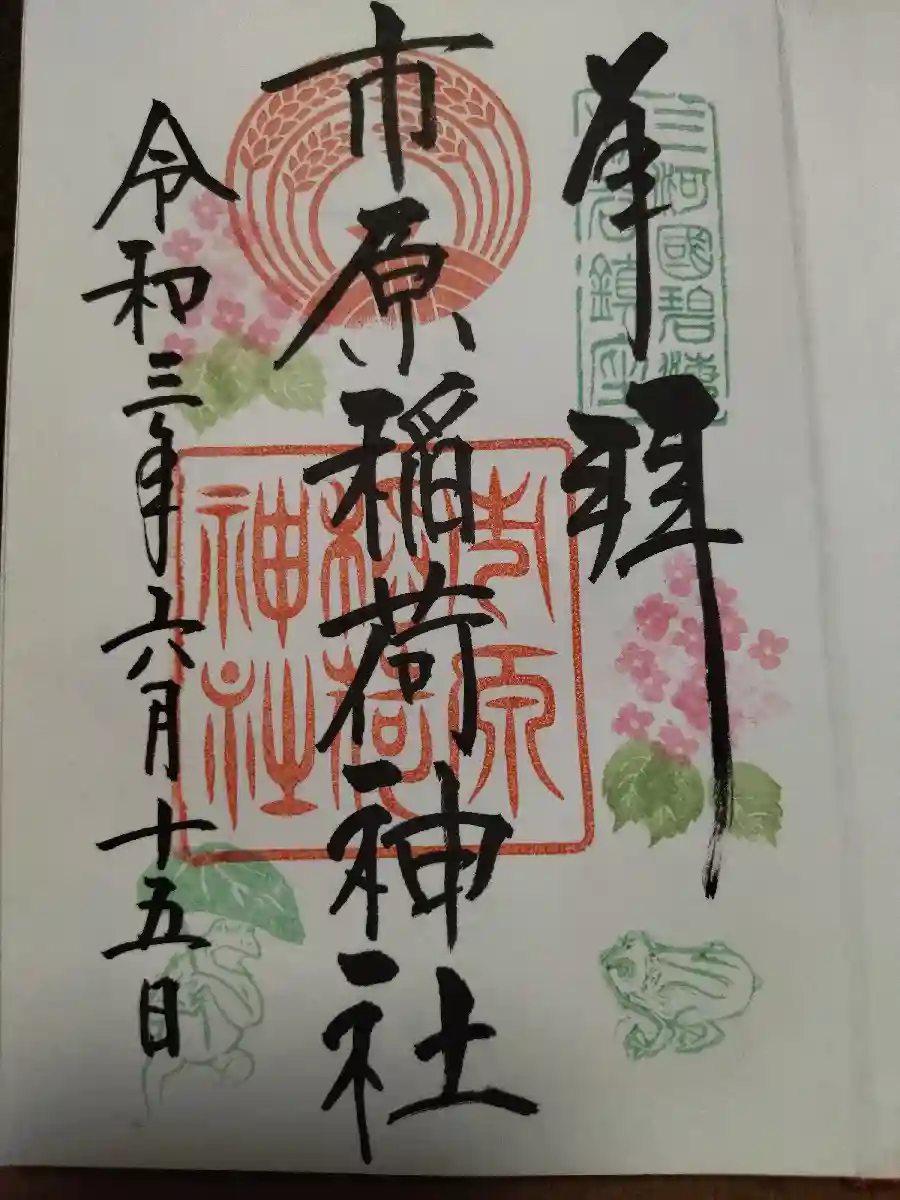 奉拝
三河國碧海
鎮座
市原稲荷神社
市原
稲荷
神社
令和三年六月十五日